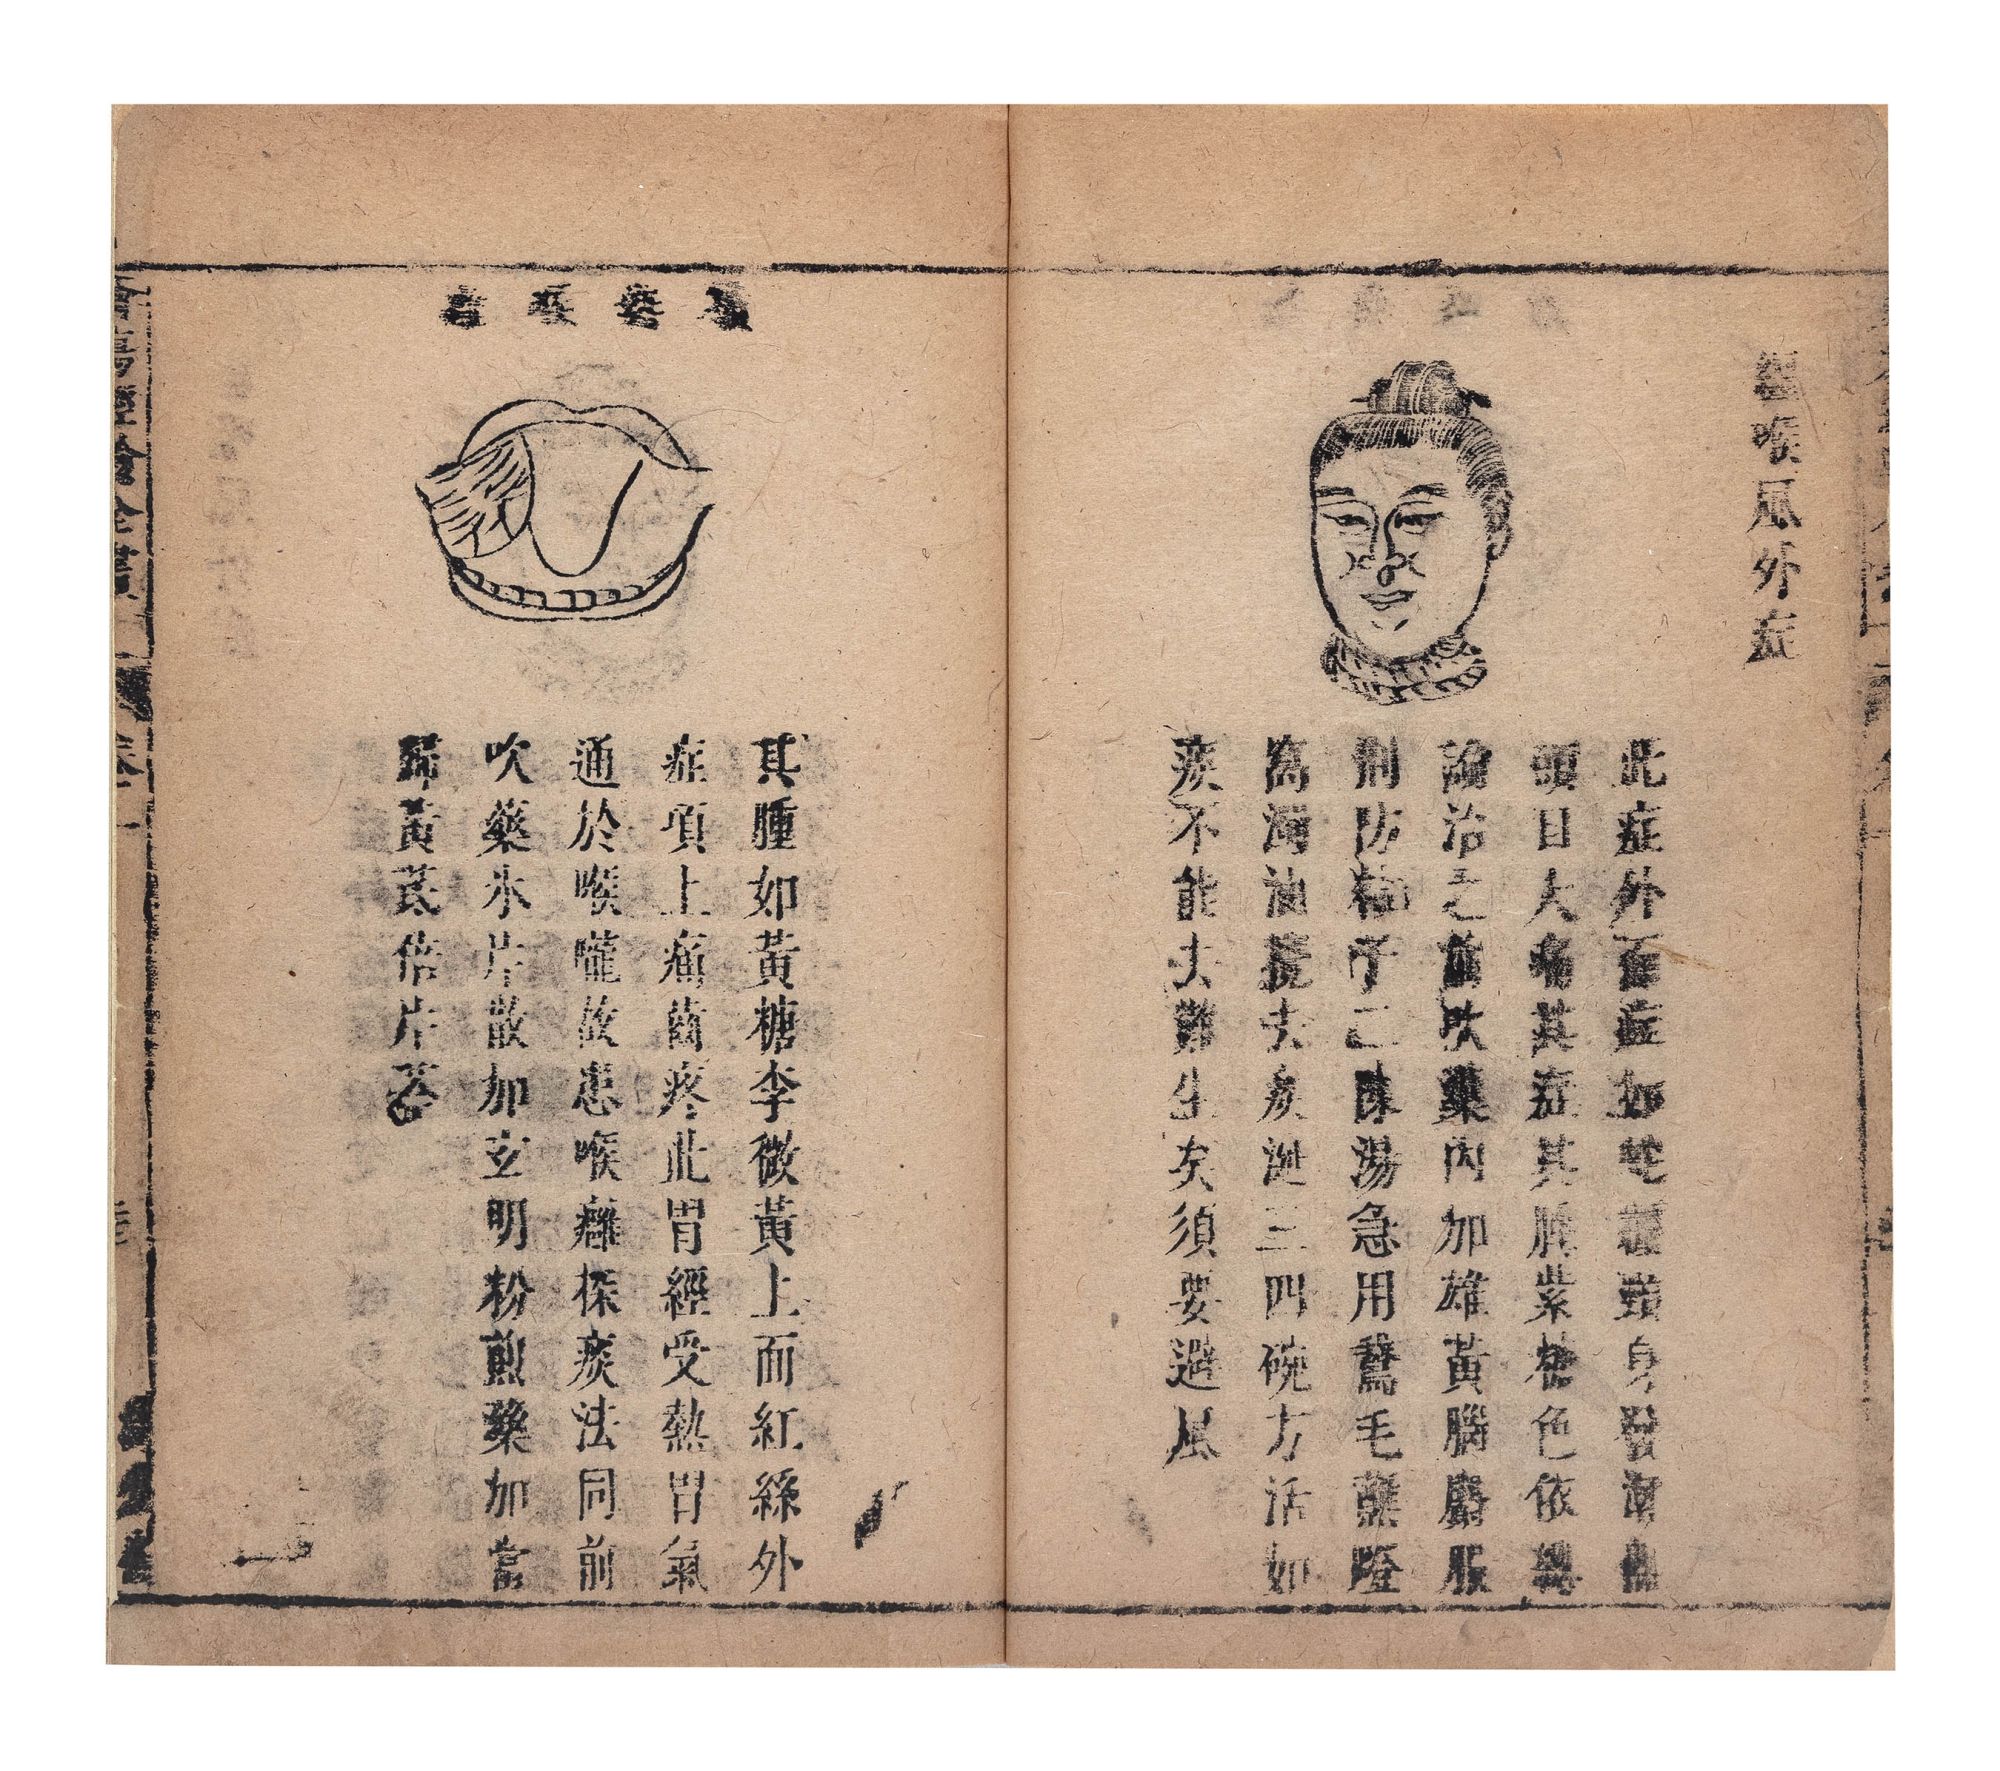 纏喉風外症
此症外面症如蛇纏頸身發潮
頭目大痛其症其腫紫糖色依
論治之前吹藥內加雄黃腦麝服
荊防粘子二陳湯急用鵞毛蘸
為滴油攪去痰涎三四碗方活如
痰不能去難生矣須要避風
其腫如黃糖李微黃上而紅絲外
症項上痛齒疼此胃經受熱胃氣
通於喉嚨故患喉癰探痰法同前
吹藥氷片散加玄明粉煎藥加當
歸黃茋倍片芩
卷一